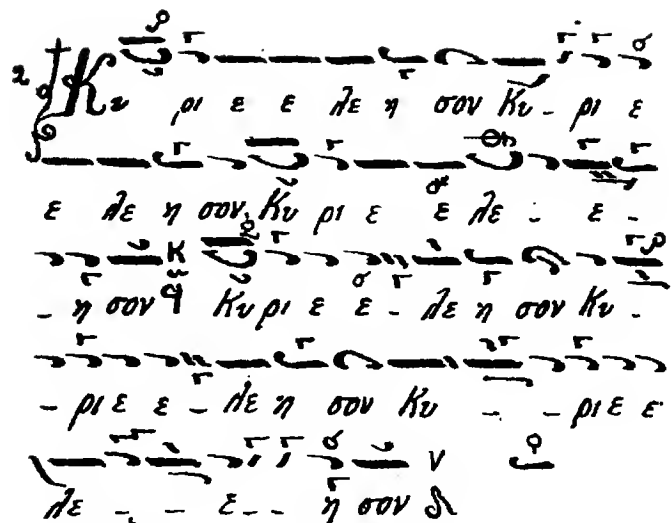 2 Κυ ρι ε ε λε η σον Κυ - ρι ε
ε λε η σον, Κυ ρι ε ε λε - ε -
- η σον Κυ ρι ε ε - λε η σον Κυ -
- ρι ε ε - λε η σον Κυ - - ρι ε ε
λε - - - ε - - η σον